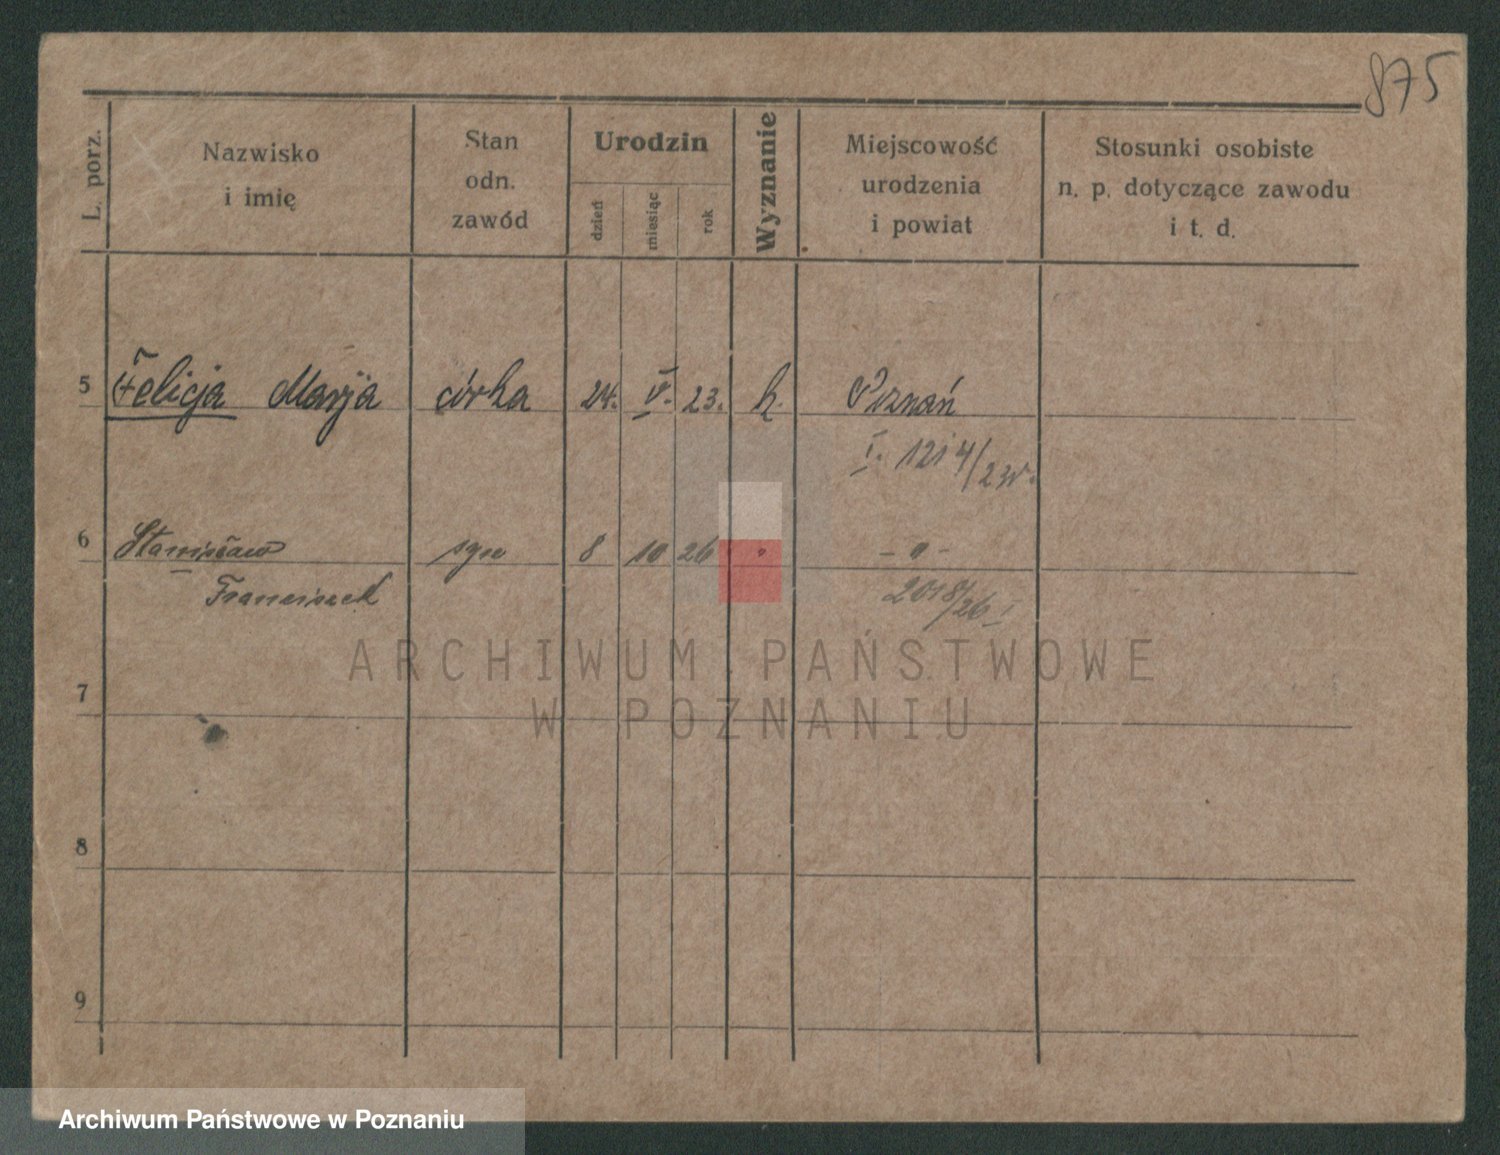 875
L. porz.
Nazwisko
i imię
Stan
odn.
zawód
Urodzin
dzień
miesiąc
rok
Wyznanie
Miejscowość
urodzenia
i powiat
Stosunki osobiste
n. p. dotyczące zawodu
i t. d.
5 Felicja Marja córka 24. V. 23. k. Poznań
I. 1214/23
6 Stanisław syn 8 10 26 " - " -
Franciszek 2018/26 I
7
8
9
ARCHIWUM PAŃSTWOWE
W POZNANIU
Archiwum Państwowe w Poznaniu